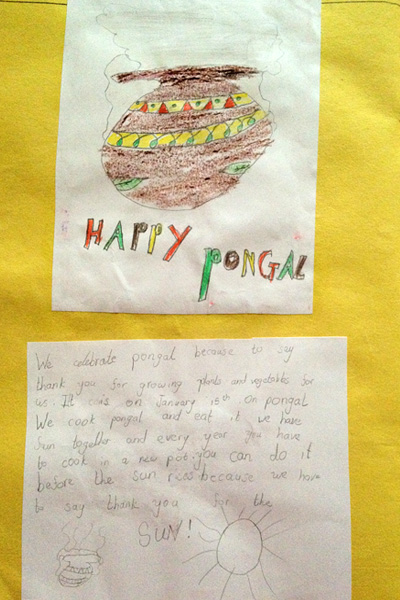 HAPPY
PONGAL
We celebrate pongal because to say
thank you for growing plants and vegetables for
us. It was on January 15th on pongal
We cook pongal and eat it we have
fun together and every year you have
to cook in a new pot. you can do it
before the sun rises because we have
to say thank you for the
SUN!